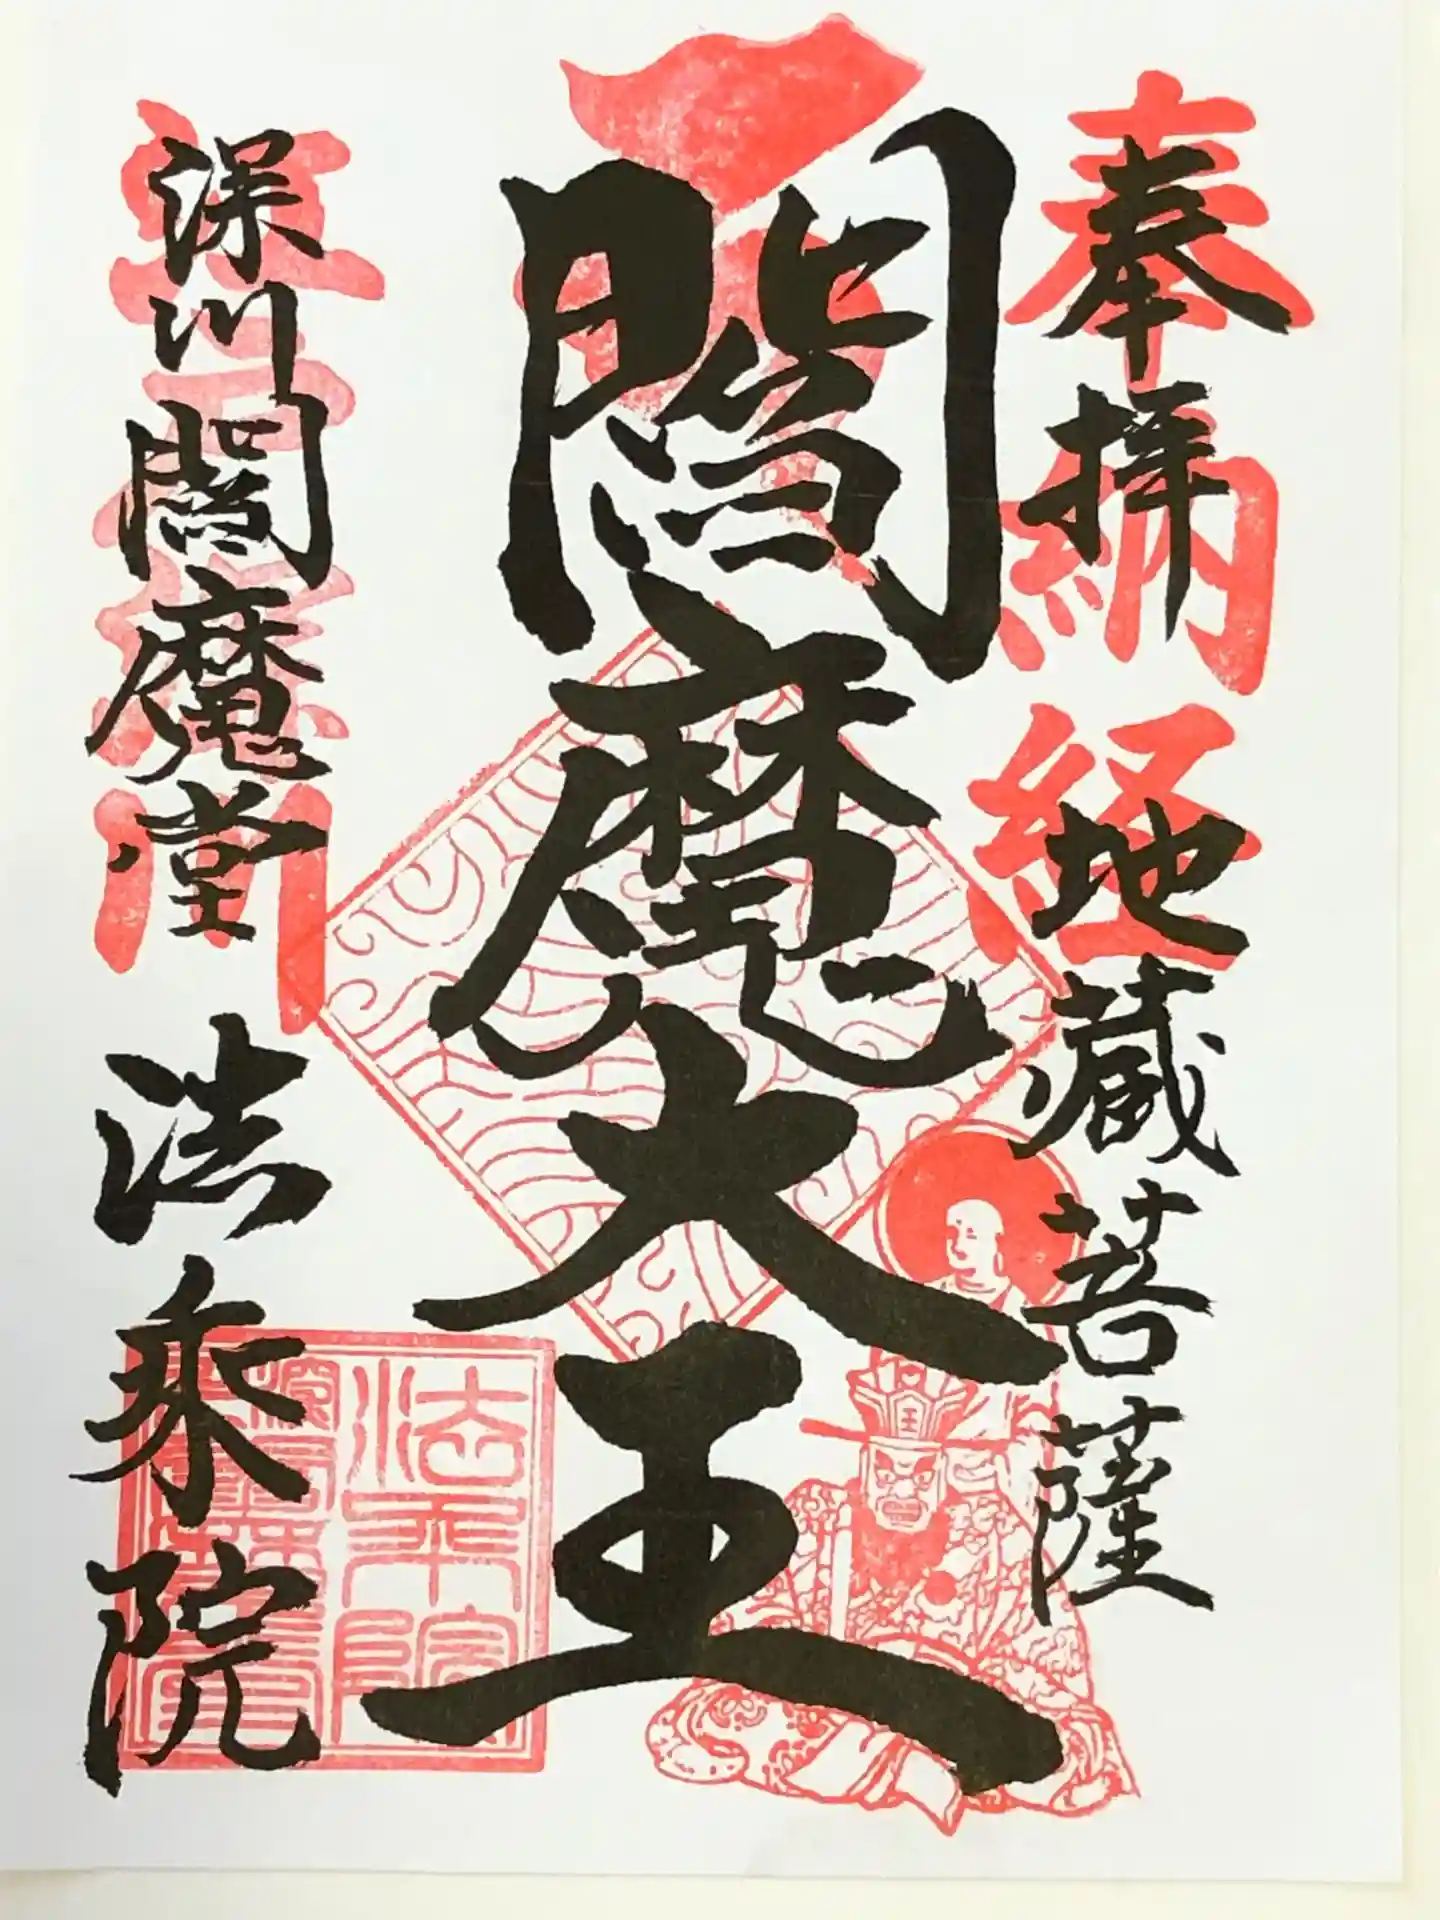 奉納経
奉拝 地蔵菩薩
閻魔大王
王
深川閻魔堂 法乗院
法乗院